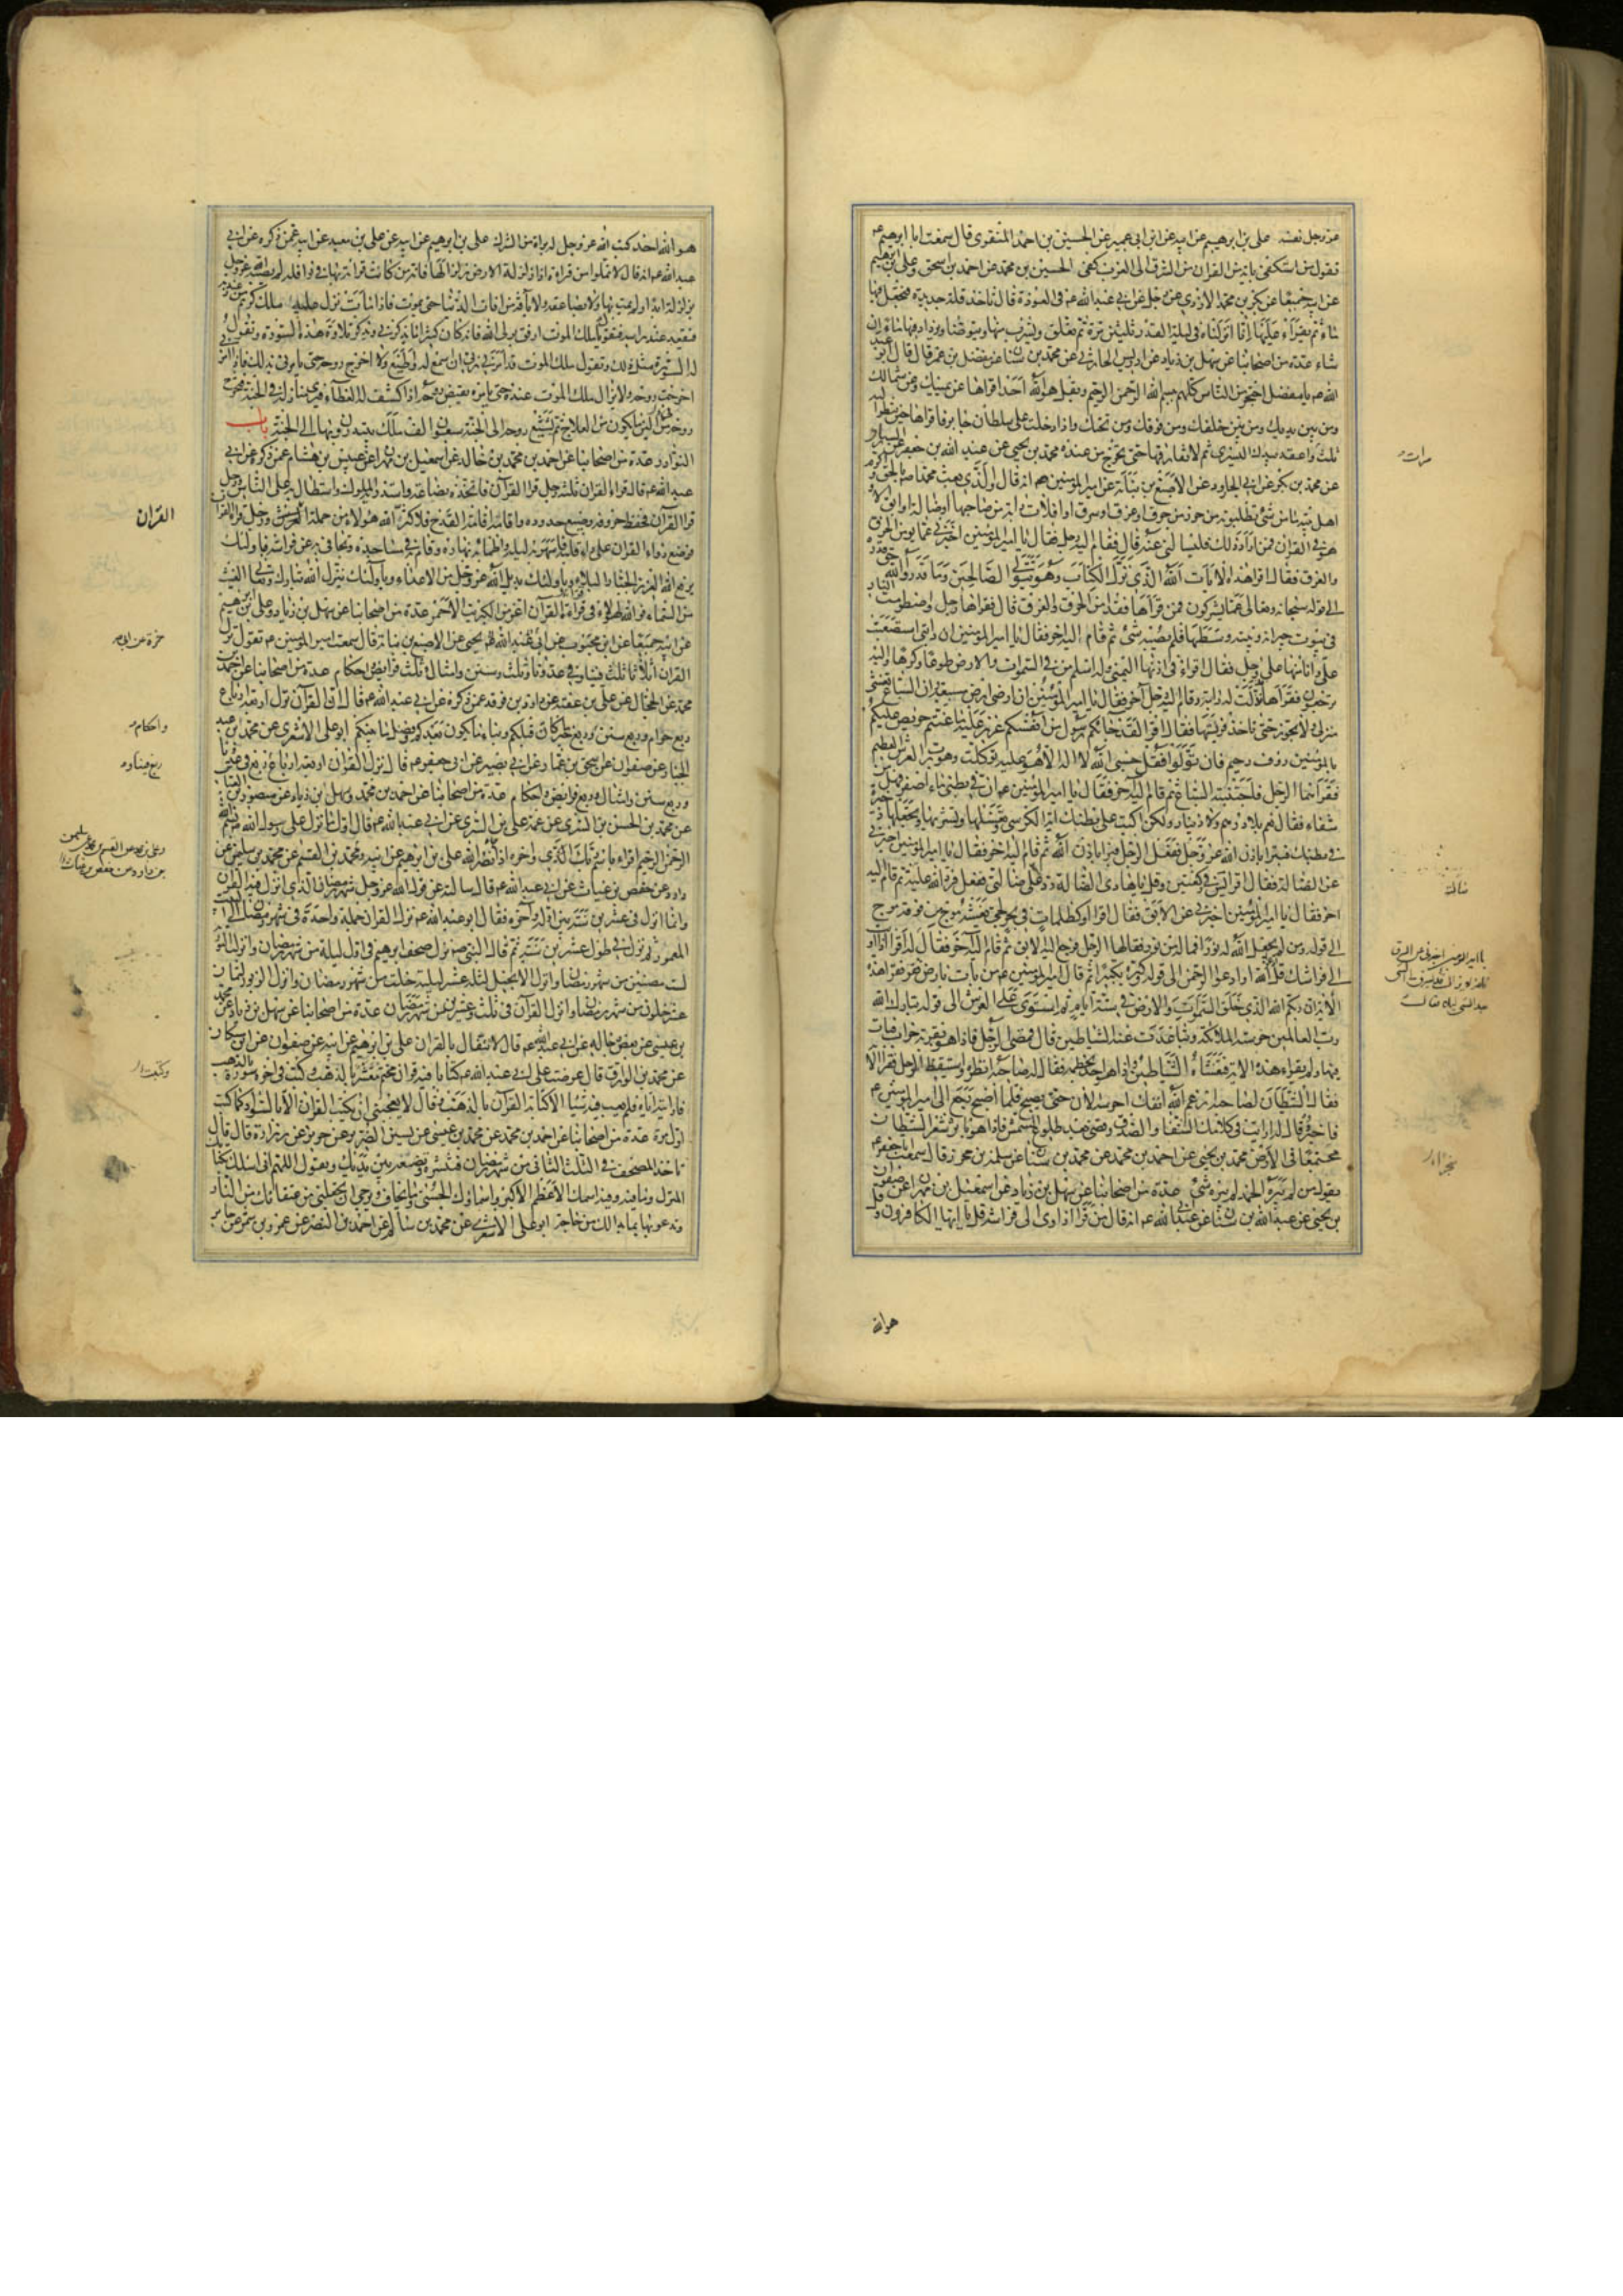 عز وجل نفسه علي بن ابرهيم عن ابيه عن ابن ابي عمير عن الحسين بن احمد المنقرى قال سمعت ابا ابرهيم ع
يقول من استكفى باية من القران من الشرق الى الغرب كفى الحسين بن محمد عن احمد بن اسحق وعلى بن ابرهيم
عن ابيه جميعا عن بكر بن محمد الازدى عن رجل عن ابي عبد الله ع في العوذة قال تأخذ قلة جديدة فتجعل فيها
ماء ثم يقرء عليها انا انزلناه في ليلة القدر ثلثين مرة ثم تعلق ويشرب منها ويتوضأ ويزداد فيها ماء ان
شاء عدة من اصحابنا عن سهل بن زياد عن ادريس الحارثي عن محمد بن سنان عن مفضل بن عمر قال قال ابو عبد
الله ع يا مفضل احتجز من الناس كلهم ببسم الله الرحمن الرحيم وبقل هو الله احد اقراها عن يمينك وعن شمالك
ومن بين يديك ومن خلفك ومن فوقك ومن تحتك واذا دخلت على سلطان جاير فاقراها حين تنظر اليه
ثلث واعقد بيدك اليسرى ثم لا تفارقها حتى تخرج من عنده محمد بن يحيى عن عبد الله بن جعفر عن السيارى
عن محمد بن بكر عن ابي الجارود عن الاصبغ بن نباتة عن امير المؤمنين ع انه قال والذى بعث محمدا ص بالحق واكرم
اهل بيته ما من شئ تطلبونه من حرز من حرق او غرق او سرق او افلات دابة من صاحبها او ضالة او ابق الا
هو في القران فمن اراد ذلك فليسالني عنه قال فقام اليه رجل فقال يا امير المؤمنين اخبرني عما يؤمن من الحرق
والغرق فقال اقرا هذه الايات الله الذى نزل الكتاب وهو يتولى الصالحين وما قدروا الله حق قدره
الى قوله سبحانه وتعالى عما يشركون فمن قراها فقد امن الحرق والغرق قال فقراها رجل واضطرمت النار
في بيوت جيرانه وبيته وسطها فلم يصبه شئ ثم قام اليه اخر فقال يا امير المؤمنين ان دابتي استصعبت
على وانا منها على وجل فقال اقرا في اذنها اليمنى وله اسلم من في السموات والارض طوعا وكرها واليه
يرجعون فقراها فذلت له دابته وقام اليه رجل اخر فقال يا امير المؤمنين ان ارضى ارض مسبعة وان السباع تغشى
منزلى ولا تجوز حتى تاخذ فريستها فقال اقرا لقد جاءكم رسول من انفسكم عزيز عليه ما عنتم حريص عليكم
بالمؤمنين رؤف رحيم فان تولوا فقل حسبى الله لا اله الا هو عليه توكلت وهو رب العرش العظيم
فقراهما الرجل فاجتنبته السباع ثم قام اليه اخر فقال يا امير المؤمنين ان في بطنى ماء اصفر فهل من
شفاء فقال نعم بلا درهم ولا دينار ولكن اكتب على بطنك اية الكرسى وتغسلها وتشربها وتجعلها ذخيرة
في بطنك فتبرا باذن الله عز وجل ففعل الرجل فبرا باذن الله ثم قام اليه اخر فقال يا امير المؤمنين اخبرني
عن الضالة فقال اقرا يس في ركعتين وقل يا هادى الضالة رد على ضالتى ففعل فرد الله عليه ثم قام اليه
اخر فقال يا امير المؤمنين اخبرني عن الابق فقال اقرا او كظلمات في بحر لجى يغشيه موج من فوقه موج
الى قوله ومن لم يجعل الله له نورا فما له من نور فقالها الرجل فرجع اليه الابق ثم قام اليه اخر فقال
الى فراشك قل ادعوا الله او ادعوا الرحمن الى قوله كبره تكبيرا ثم قال امير المؤمنين ع من بات بارض قفر فقرا هذه
الاية ان ربكم الله الذى خلق السموات والارض في ستة ايام ثم استوى على العرش الى قوله تبارك الله
رب العالمين حرسته الملائكة وتباعدت عنه الشياطين قال فمضى الرجل فاذا هو بقرية خراب فبات
فيها ولم يقراء هذه الاية فتغشاه الشياطين واذا هو اخذ بخطمه فقال له صاحبه انظره واستيقظ الرجل فقرا الاية
فقال الشيطان لصاحبه ارغم الله انفك احرسه الان حتى يصبح فلما اصبح رجع الى امير المؤمنين ع
فاخبره وقال له رايت في كلامك الشفاء والصدق ومضى بعد طلوع الشمس فاذا هو باثر شعر الشيطان
مجتمعا في الارض محمد بن يحيى عن احمد بن محمد عن محمد بن سنان عن سلمة بن محرز قال سمعت ابا جعفر ع
يقول من لم يبرءه الحمد لم يبرءه شئ عدة من اصحابنا عن سهل بن زياد عن اسمعيل بن مهران عن صفوان
بن يحيى عن عبد الله بن سنان عن ابي عبد الله ع انه قال من قرا اذا اوى الى فراشه قل يا ايها الكافرون وقل
هو الله
هو الله احد كتب الله عز وجل له براءة من الشرك علي بن ابرهيم عن ابيه عن علي بن معبد عن ابيه عمن ذكره عن ابي
عبد الله ع انه قال لا تملوا من قراءة اذا زلزلت الارض زلزالها فانه من كانت قرائته بها في نوافله لم يصبه الله عز وجل
بزلزلة ابدا ولم يمت بها ولا بصاعقة ولا بآفة من افات الدنيا حتى يموت فاذا مات نزل عليه ملك كريم من عند ربه
فيقعد عند راسه فيقول يا ملك الموت ارفق بولى الله فانه كان كثيرا ما يذكرني ويذكر تلاوة هذه السورة وتقول
له السورة مثل ذلك ويقول ملك الموت قد امرني ربي ان اسمع له واطيع ولا اخرج روحه حتى يامرني بذلك فاذا امرني
اخرجت روحه ولا يزال ملك الموت عنده حتى يامره بقبض روحه اذا كشف له الغطاء فيرى منازله في الجنة فيخرج
روحه من الين ما يكون من العلاج ثم يشيع روحه الى الجنة سبعون الف ملك يبتدرون بها الى الجنة باب
النوادر عدة من اصحابنا عن احمد بن محمد بن خالد عن اسمعيل بن مهران عن عبيس بن هشام عمن ذكره عن ابي
عبد الله ع قال قراء القران ثلثة رجل قرا القران فاتخذه بضاعة واستدر به الملوك واستطال به على الناس ورجل
قرا القران فحفظ حروفه وضيع حدوده واقامه اقامة القدح فلا كثر الله هؤلاء من حملة القران ورجل قرا القران
فوضع دواء القران على داء قلبه فاسهر به ليله واظمأ به نهاره وقام به في مساجده وتجافى به عن فراشه فباولئك
يدفع الله العزيز الجبار البلاء وباولئك يديل الله عز وجل من الاعداء وباولئك ينزل الله تبارك وتعالى الغيث
من السماء فوالله لهؤلاء في قراء القران اعز من الكبريت الاحمر عدة من اصحابنا عن سهل بن زياد وعلى بن ابرهيم
عن ابيه جميعا عن ابن محبوب عن ابي يحيى عن الاصبغ بن نباتة قال سمعت امير المؤمنين ع يقول نزل
القران اثلاثا ثلث فينا وفي عدونا وثلث سنن وامثال وثلث فرايض واحكام عدة من اصحابنا عن احمد بن
محمد عن الحجال عن علي بن عقبة عن داود بن فرقد عمن ذكره عن ابي عبد الله ع قال ان القران نزل اربعة ارباع
ربع حلال وربع حرام وربع سنن وربع خبر ما كان قبلكم ونباء ما يكون بعدكم وفصل ما بينكم ابو على الاشعرى عن محمد بن عبد
الجبار عن صفوان عن اسحق بن عمار عن ابي بصير عن ابي جعفر ع قال نزل القران اربعة ارباع ربع في عدونا
وربع سنن وامثال وربع فرايض واحكام عدة من اصحابنا عن احمد بن محمد وسهل بن زياد عن منصور بن العباس
عن محمد بن الحسن بن السرى عن عمه علي بن السرى عن ابي عبد الله ع قال اول ما نزل على رسول الله ص بسم الله
الرحمن الرحيم اقراء باسم ربك الذى واخره اذا جاء نصر الله علي بن ابرهيم عن ابيه ومحمد بن القسم عن محمد بن سليمن عن
داود عن حفص بن غياث عن ابي عبد الله ع قال سالته عن قول الله عز وجل شهر رمضان الذى انزل فيه القران
وانما انزل في عشرين سنة بين اوله وآخره فقال ابو عبد الله ع نزل القران جملة واحدة في شهر رمضان الى البيت
المعمور ثم نزل في طول عشرين سنة ثم قال النبى ص نزل صحف ابرهيم في اول ليلة من شهر رمضان وانزل التورية
لست مضين من شهر رمضان وانزل الانجيل لثلث عشر ليلة خلت من شهر رمضان وانزل الزبور لثمان
عشر خلون من شهر رمضان وانزل القران في ثلث وعشرين من شهر رمضان عدة من اصحابنا عن سهل بن زياد عن محمد
بن عيسى عن بعض رجاله عن ابي عبد الله ع قال لا تتفال بالقران علي بن ابرهيم عن ابيه عن صفوان عن ابن مسكان
عن محمد بن الوراق قال عرضت على ابي عبد الله ع كتابا فيه قران مختم معشر بالذهب وكتب في اخره سورة بالذهب
فاريته اياه فلم يعب فيه شيئا الا كتابة القران بالذهب وقال لا يعجبني ان يكتب القران الا بالسواد كما كتب
اول مرة عدة من اصحابنا عن احمد بن محمد عن محمد بن عيسى عن يسين الضرير عن حريز عن زرارة قال قال
تاخذ المصحف في الثلث الثاني من شهر رمضان فتنشره وتضعه بين يديك وتقول اللهم انى اسئلك بكتابك
المنزل وما فيه وفيه اسمك الاعظم الاكبر واسماؤك الحسنى وما يخاف ويرجى ان تجعلنى من عتقائك من النار
وتدعو بما بدا لك من حاجة ابو على الاشعرى عن محمد بن سالم عن احمد بن النضر عن عمرو بن شمر عن جابر
القران
حمزة عن ابي
واحكام
ربع فينا و